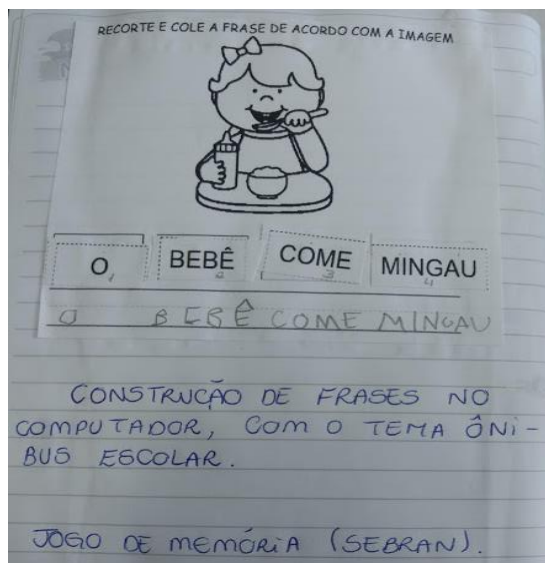 RECORTE E COLE A FRASE DE ACORDO COM A IMAGEM
O BEBÊ COME MINGAU
1 2 3 4
O BEBÊ COME MINGAU
CONSTRUCÃO DE FRASES NO
COMPUTADOR, COM O TEMA ÔNI-
BUS ESCOLAR.
JOGO DE MEMÓRIA (SEBRAN).